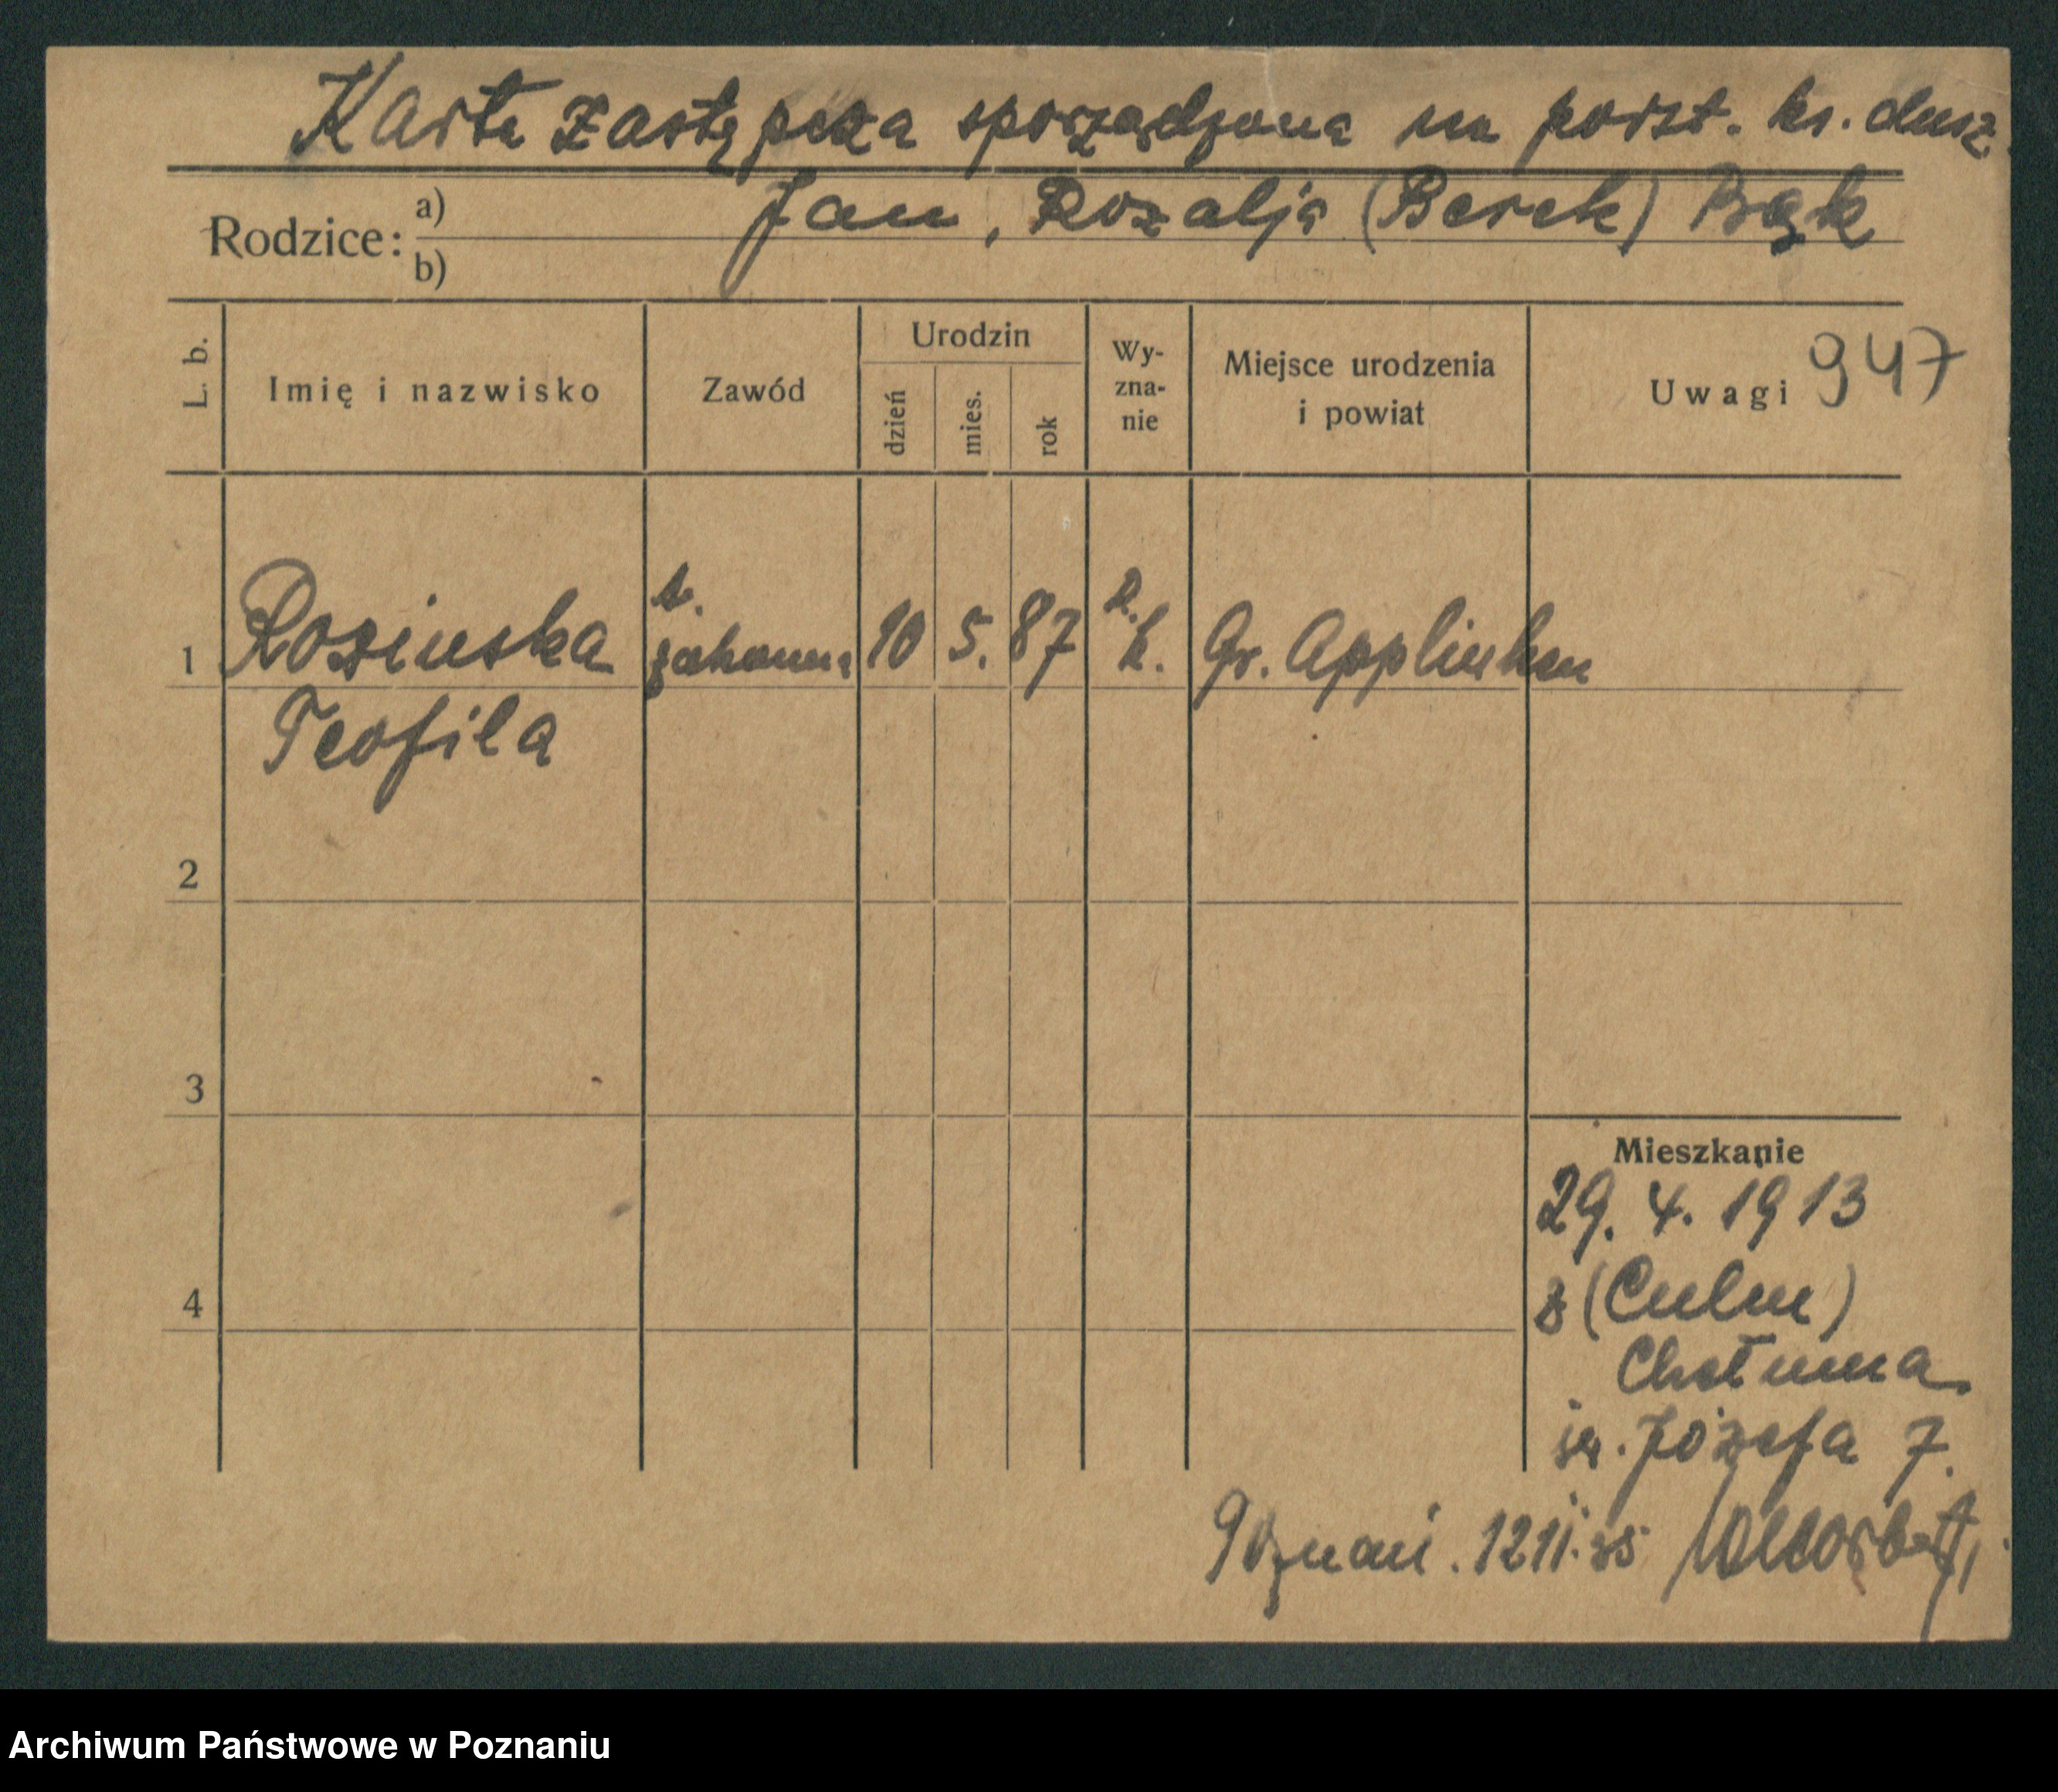 Karta zastępcza sporządzona na podst. ks. dusz.
Rodzice: a) Jan, Rozalja (Berek) Bąk
b)
L. b. Imię i nazwisko Zawód Urodzin dzień mies. rok Wy-zna-nie Miejsce urodzenia i powiat Uwagi 947
1 Rosinska s. zakonna 10 5. 87 r. k. Gr. Applinken
Teofila
2
3
Mieszkanie
29. 4. 1913
4 z (Culm)
Chełmna
św. Józefa 7.
Poznań. 12 II. 35
Archiwum Państwowe w Poznaniu